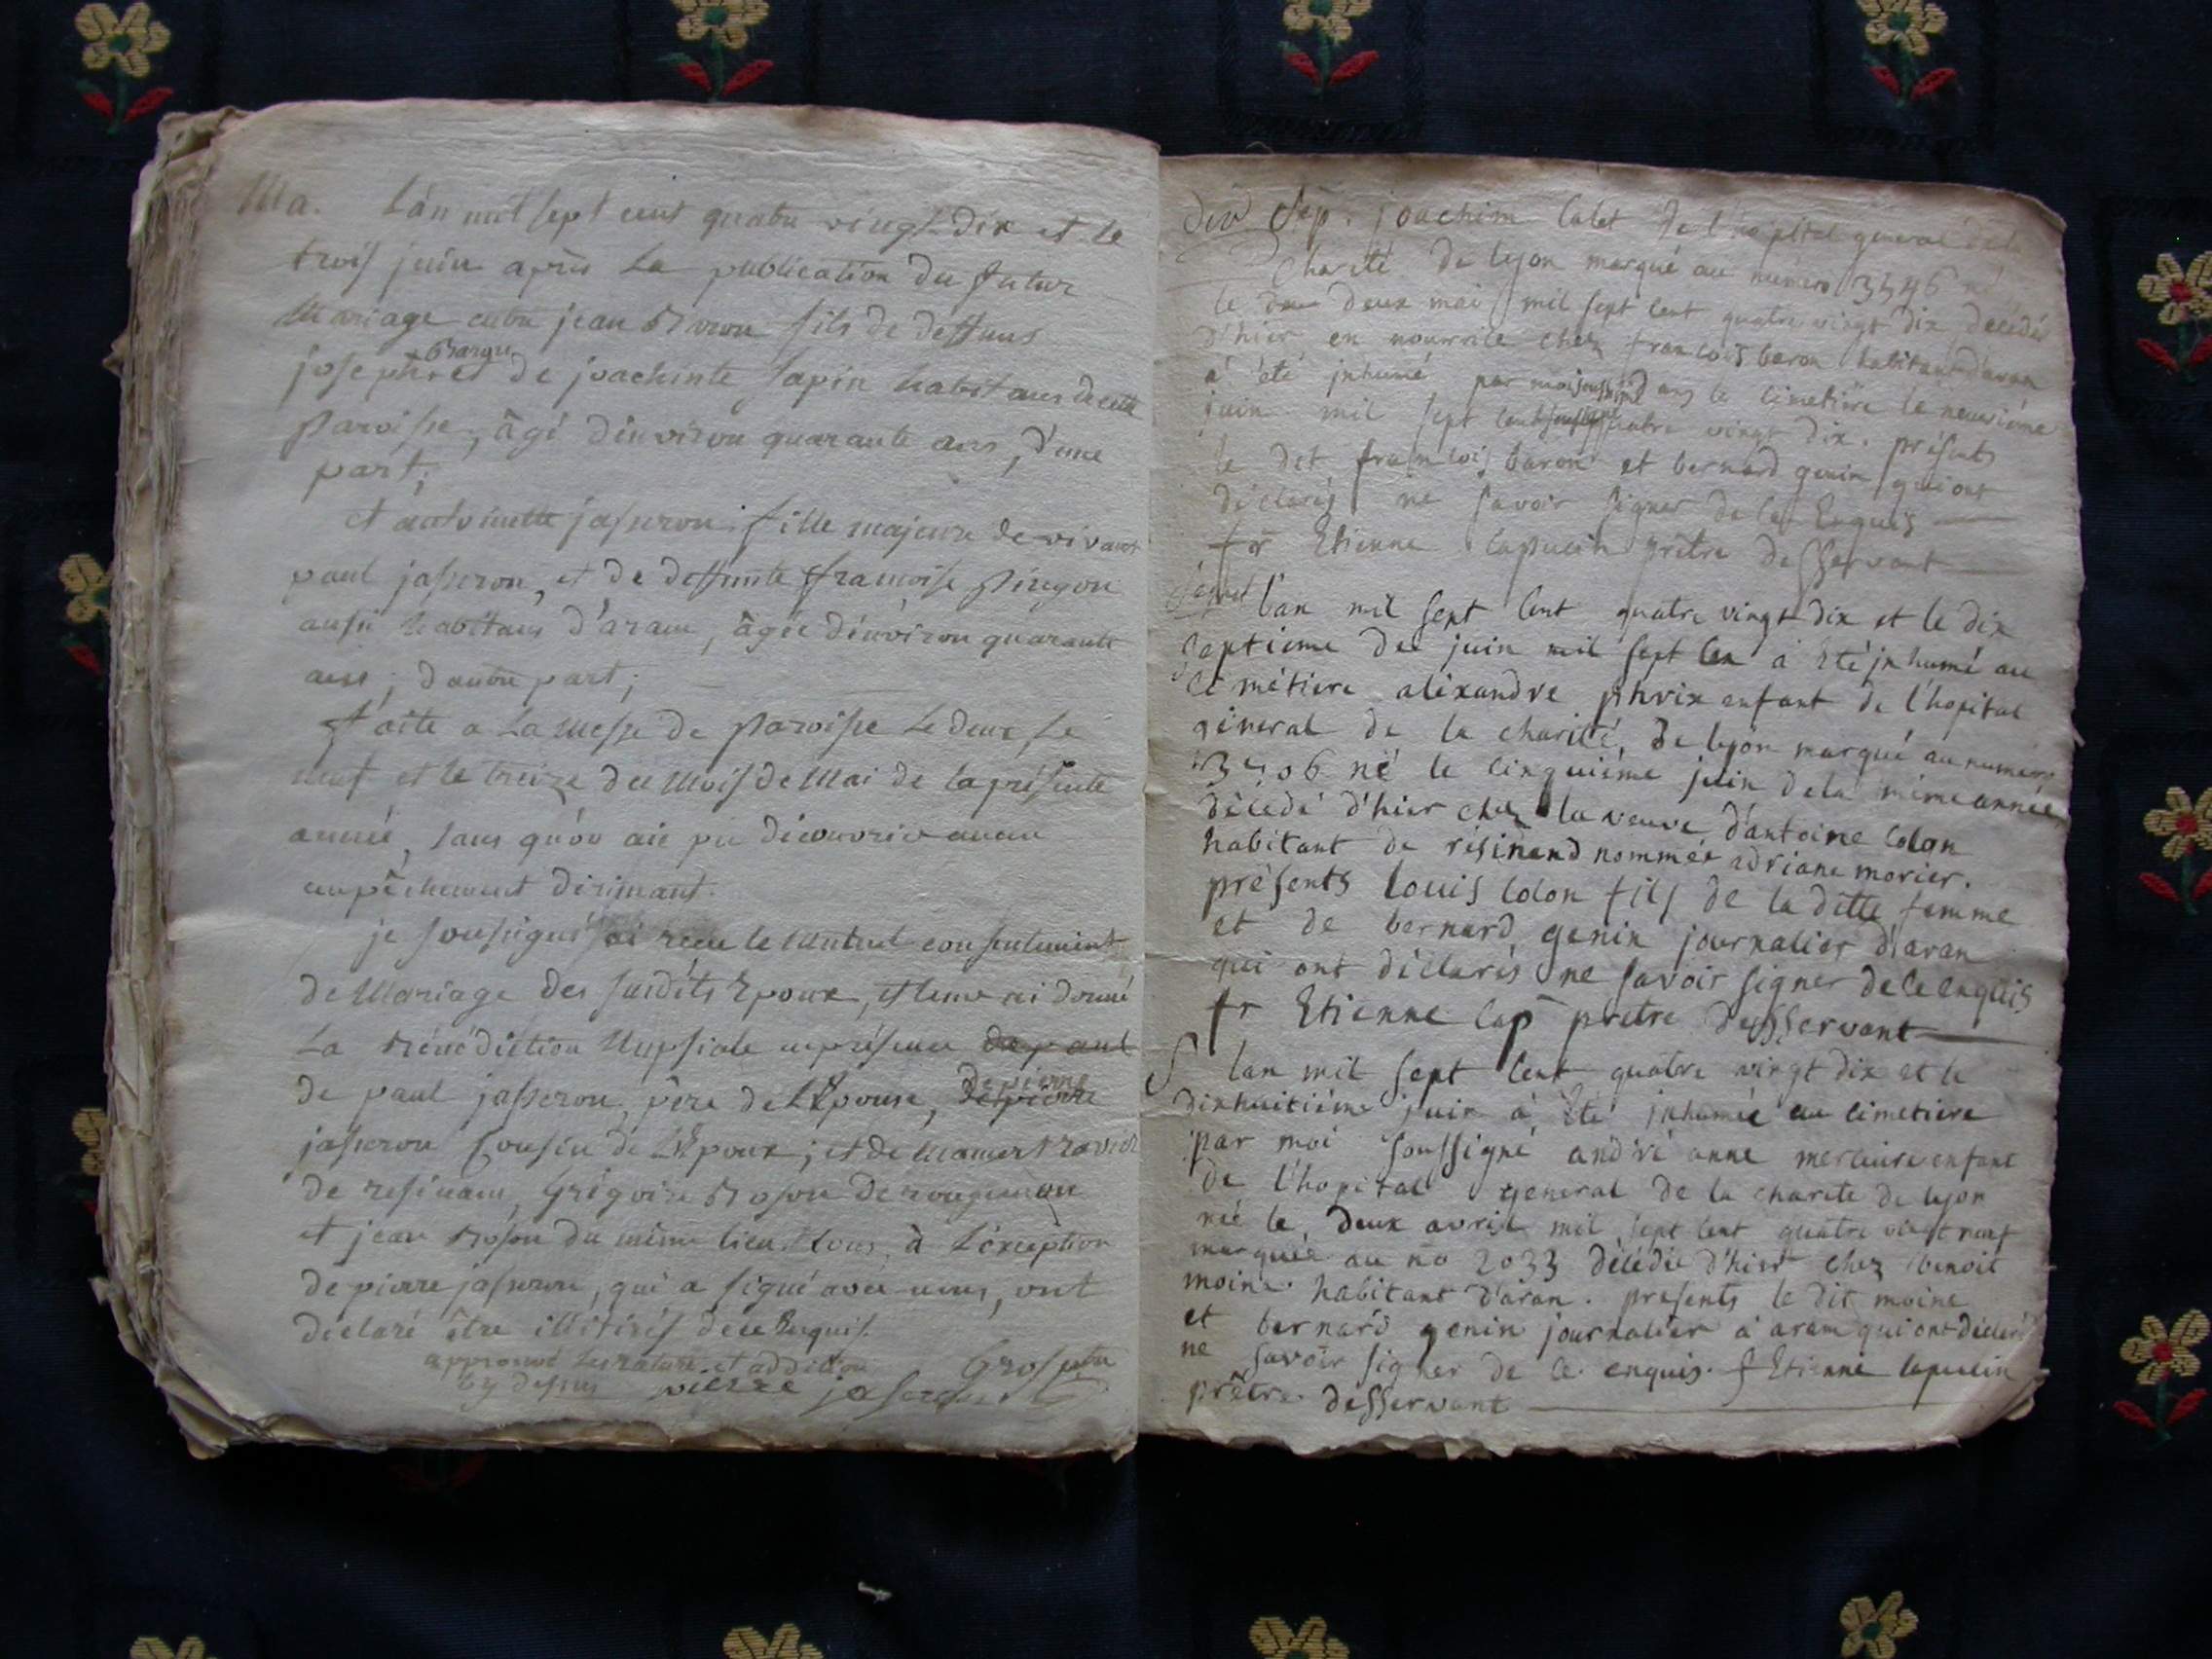 Ma. L'an mil sept cent quatre vingt-dix et le
trois juin après La publication du futur
Mariage entre jean Baron fils de deffuns
joseph et de joachinte Sapin habitans de cette
Paroisse, âgé d'environ quarante ans, d'une
part;
et antoinette jasseron fille majeure de vivant
paul jasseron, et de deffunte françoise Pingon
aussi habitans d'aran, âgée d'environ quarante
ans; d'autre part;
faite a La Messe de Paroisse Le deux, Le
neuf et le treize du Mois de Mai de la présente
année, sans qu'on aie pu découvrir aucun
empêchement dirimant.
je soussigné ai reçu le Mutuel consentement
de Mariage des susdits Epoux, et leur ai donné
La Bénédiction Nupsiale en présence de paul
de paul jasseron, père de L'Epouse, de pierre
jasseron Cousin de L'Epoux; et de
de resinam, Grégoire Boson de rougemon
et jean Boson du même lieu. tous, à L'exception
de pierre jasseron, qui a signé avec nous, ont
déclaré être illitirés de ce Enquis.
approuvé La rature et addition
cy dessus pierre jaseron
sep. joachim Calet de l'hopital general de la
Charité de lyon marqué au numero 3546 né
le deux mai mil sept cent quatre vingt dix décédé
d'hier en nourrice chez francois baron habitant d'aran
à été inhumé par moi soussigné dans le cimetière le neuvième
juin mil sept cent quatre vingt dix. présents
le dit francois baron et bernard genin qui ont
déclarés ne savoir signer de ce Enquis
fr Etienne Capucin prêtre desservant
sepul l'an mil sept cent quatre vingt dix et le dix
septieme de juin mil sept cen à été inhumé au
cimétiere aléxandre phrix enfant de l'hopital
géneral de la charité, de lyon marqué au numero
3506 né le cinquiéme juin de la même année
décédé d'hier chez la veuve d'antoine Colon
habitant de résinand nommée adriane morier.
présents louis Colon fils de la ditte femme
et de bernard genin journalier d'aran
qui ont déclarés ne savoir signer de ce enquis
fr Etienne Cap prêtre desservant
S lan mil sept cent quatre vingt dix et le
dixhuitiéme juin à été inhumée au cimetiere
par moi soussigné andré anne mercure enfant
de l'hopital general de la charité de lyon
née le deux avril mil sept cent quatre vingt neuf
marquée au no 2033 décédée d'hier chez benoit
moine habitant d'aran. présents le dit moine
et bernard genin journalier à aram qui ont déclaré
ne savoir signer de ce enquis. f Etienne capucin
prêtre desservant